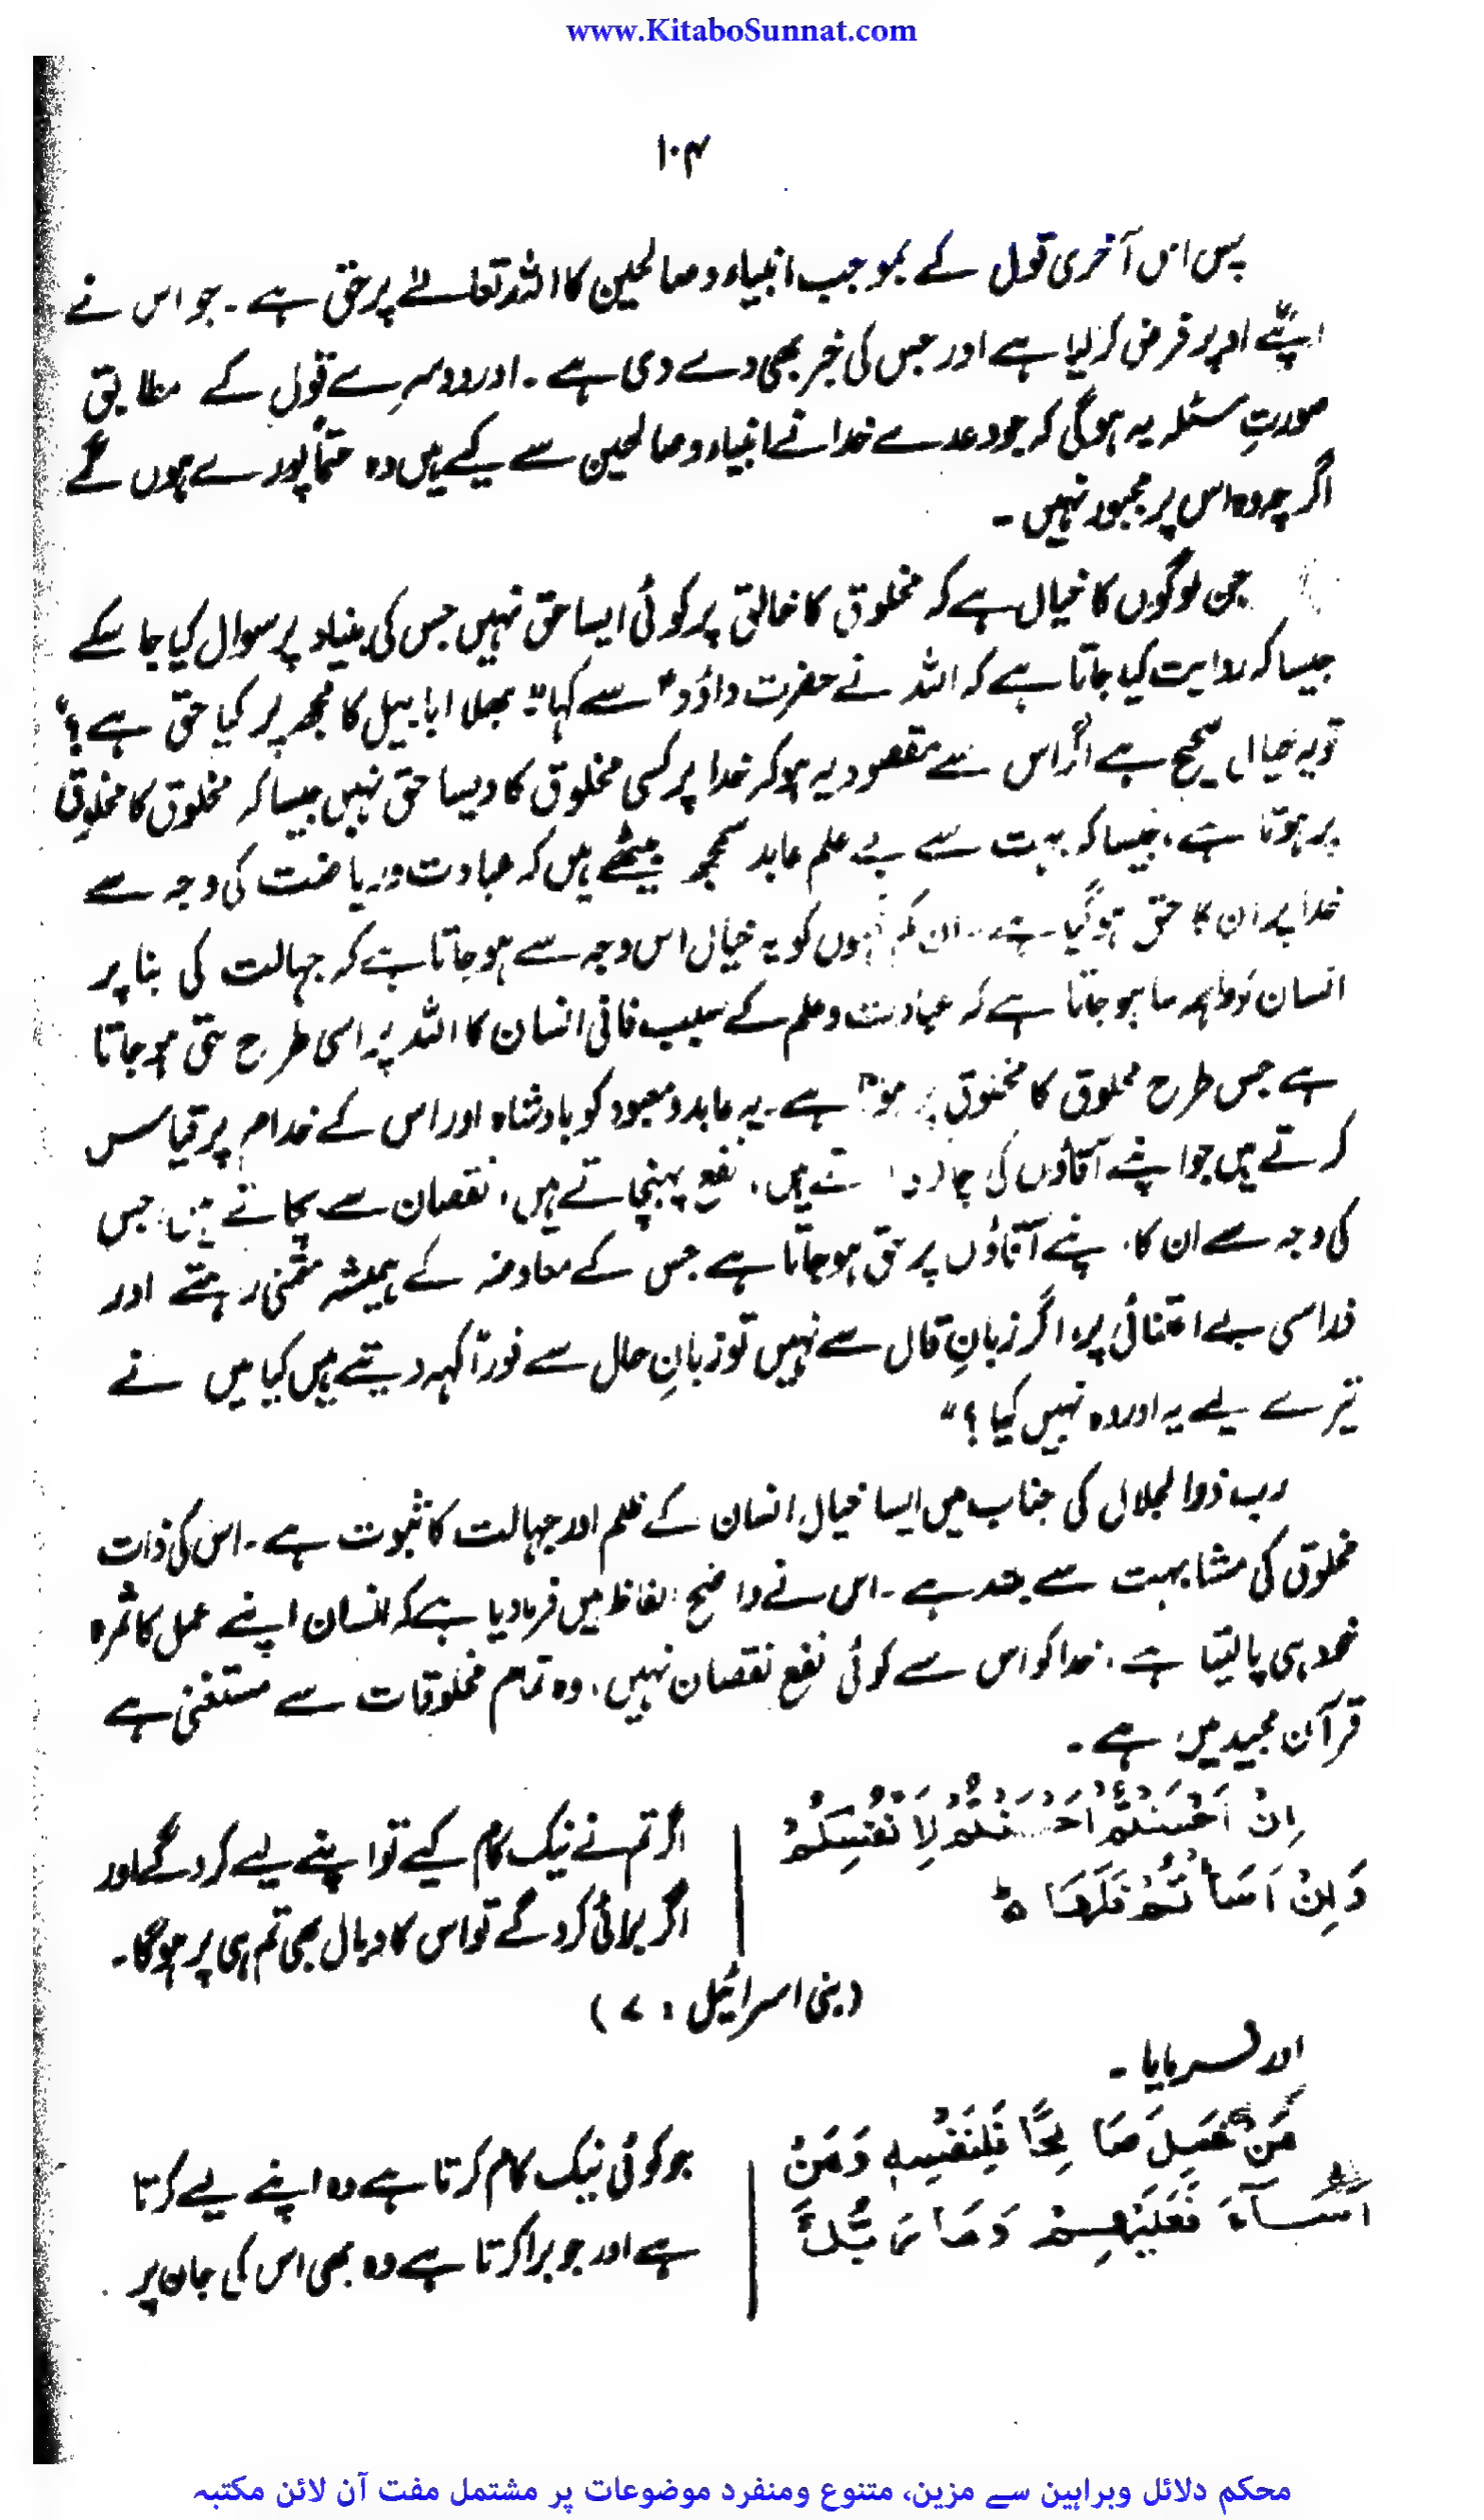 www.KitaboSunnat.com
۱۰۴
پس اس آخری قول کے بموجب انبیاء و صالحین کا اللہ تعالےٰ پر حق ہے۔ جو اس نے
اپنے اوپر فرض کر لیا ہے اور جس کی خبر بھی دے دی ہے۔ اور دوسرے قول کے مطابق
صورتِ مسئلہ یہ ہوگی کہ جو وعدے خدا نے انبیاء و صالحین سے کیے ہیں وہ حتماً پورے ہوں گے
اگرچہ وہ اس پر مجبور نہیں۔
جن لوگوں کا خیال ہے کہ مخلوق کا خالق پر کوئی ایسا حق نہیں جس کی بنیاد پر سوال کیا جا سکے
جیسا کہ روایت کیا جاتا ہے کہ اللہ نے حضرت داؤدؑ سے کہا "بھلا ابابیل کا مجھ پر کیا حق ہے؟"
تو یہ خیال صحیح ہے اگر اس سے مقصود یہ ہو کہ خدا پر کسی مخلوق کا ویسا حق نہیں جیسا کہ مخلوق کا مخلوق
پر ہوتا ہے، جیسا کہ بہت سے بے علم عابد سمجھ بیٹھے ہیں کہ عبادت و ریاضت کی وجہ سے
خدا پر ان کا حق ہو گیا ہے۔ ان کم فہموں کو یہ خیال اس وجہ سے ہو جاتا ہے کہ جہالت کی بنا پر
انسان کو واہمہ سا ہو جاتا ہے کہ عبادت و علم کے سبب فانی انسان کا اللہ پر اسی طرح حق ہو جاتا
ہے جس طرح مخلوق کا مخلوق پر ہوتا ہے۔ یہ عابد و معبود کو بادشاہ اور اس کے خدام پر قیاس
کرتے ہیں جو اپنے آقاؤں کی ہیں، نفع پہنچاتے ہیں، نقصان سے بچاتے ہیں، جس
کی وجہ سے ان کا اپنے آقاؤں پر حق ہو جاتا ہے جس کے معاوضہ کے ہمیشہ متمنی رہتے اور
ذرا سی بے اعتنائی پر، اگر زبانِ قال سے نہیں تو زبانِ حال سے فوراً کہہ دیتے ہیں کیا میں نے
تیرے لیے یہ اور وہ نہیں کیا؟"
رب ذوالجلال کی جناب میں ایسا خیال، انسان کے ظلم اور جہالت کا ثبوت ہے۔ اس کی ذات
مخلوق کی مشابہت سے بعید ہے۔ اس نے واضح الفاظ میں فرما دیا ہے کہ انسان اپنے عمل کا ثمرہ
خود ہی پا لیتا ہے، خدا کو اس سے کوئی نفع نقصان نہیں، وہ تمام مخلوقات سے مستغنی ہے
قرآن مجید میں ہے۔
اِنْ اَحْسَنْتُمْ اَحْسَنْتُمْ لِاَنْفُسِكُمْ
وَاِنْ اَسَأْتُمْ فَلَهَا ط
اگر تم نے نیک کام کیے تو اپنے لیے کرو گے اور
اگر برائی کرو گے تو اس کا وبال بھی تم ہی پر ہوگا۔
(بنی اسرائیل: ۷)
اور فرمایا۔
مَنْ عَمِلَ صَالِحًا فَلِنَفْسِهٖ وَمَنْ
اَسَآءَ فَعَلَيْهِمْ وَمَا رَبُّكَ
جو کوئی نیک کام کرتا ہے وہ اپنے لیے کرتا
ہے اور جو برا کرتا ہے وہ بھی اس کی جان پر
محکم دلائل وبراہین سے مزین، متنوع ومنفرد موضوعات پر مشتمل مفت آن لائن مکتبہ